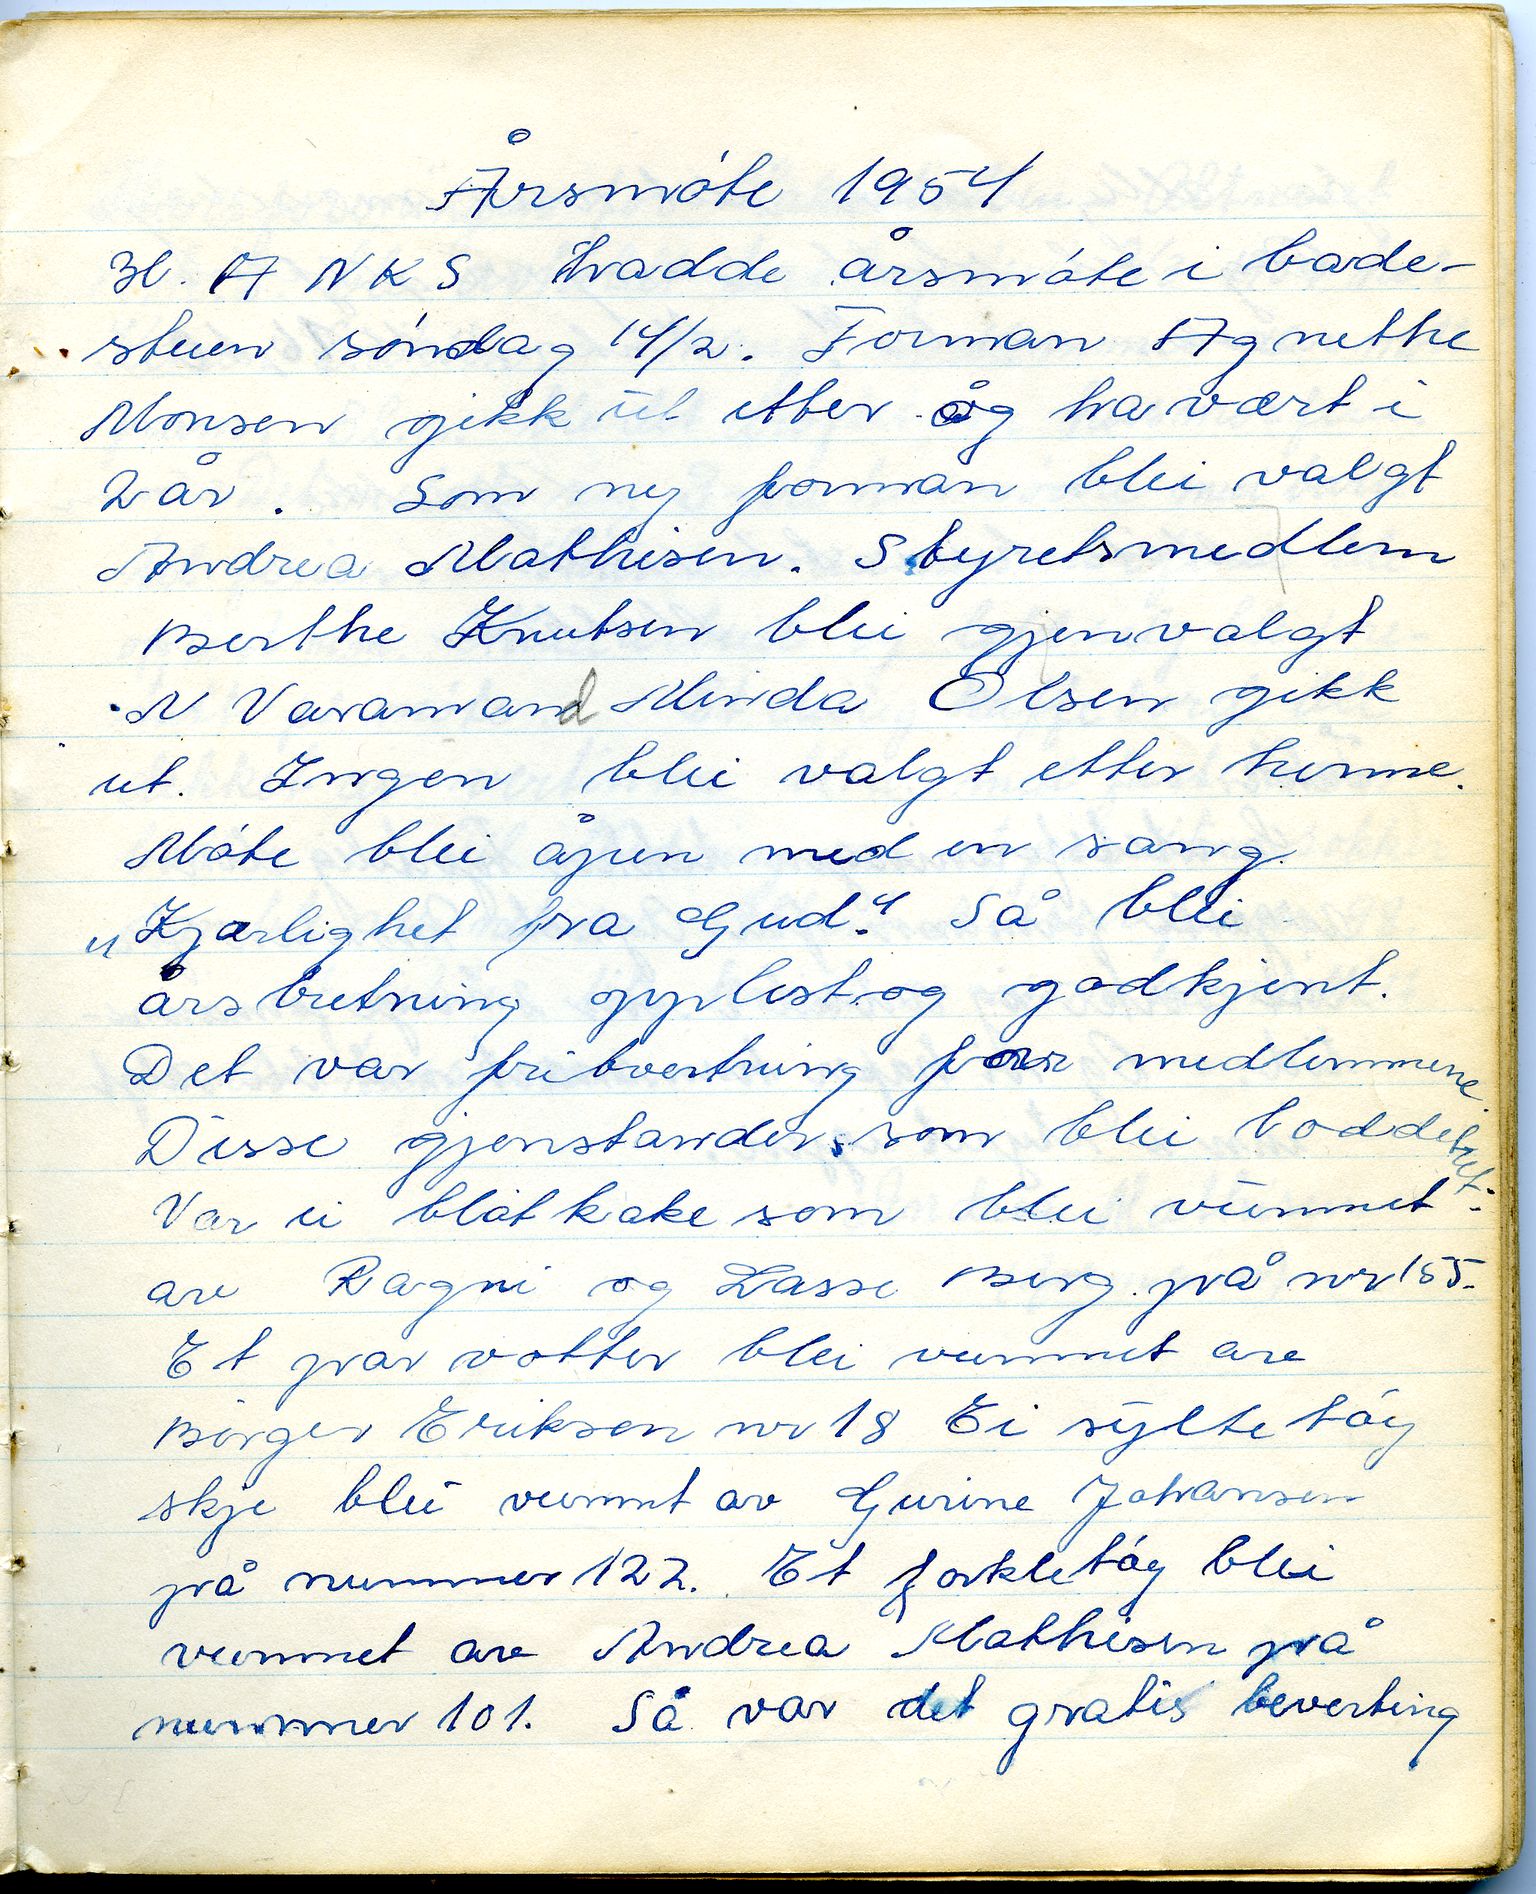 Årsmöte 1954
Bl. A N K S Hadde årsmöte i bade-
stuen söndag 14/2. Forman Agnethe
Monsen gikk ut etter og ha vært i
2 år. Som ny forman blei valgt
Andrea Mathisen. Styretsmedlem
Berthe Knutsen blei gjenvalgt
N Varamand Minda Olsen gikk
ut. Ingen blei valgt etter henne.
Möte blei åpen med en sang.
„Kjærlighet fra Gud." Så blei
årsbretning opplest og godkjent.
Det var fribvertning for medlemmene.
Disse gjenstander som blei loddet ut.
Var ei blötkake som blei vunnet
av Ragni og Lasse Berg på nr 155.
Et par votter blei vunnet av
Börger Eriksen nr 18 Ei syltetöy
skje blei vunnt av Gurine Johansen
på nummer 122. Et forkletöy blei
vunnet av Andrea Mathisen på
nummer 101. Så var det gratis beverting